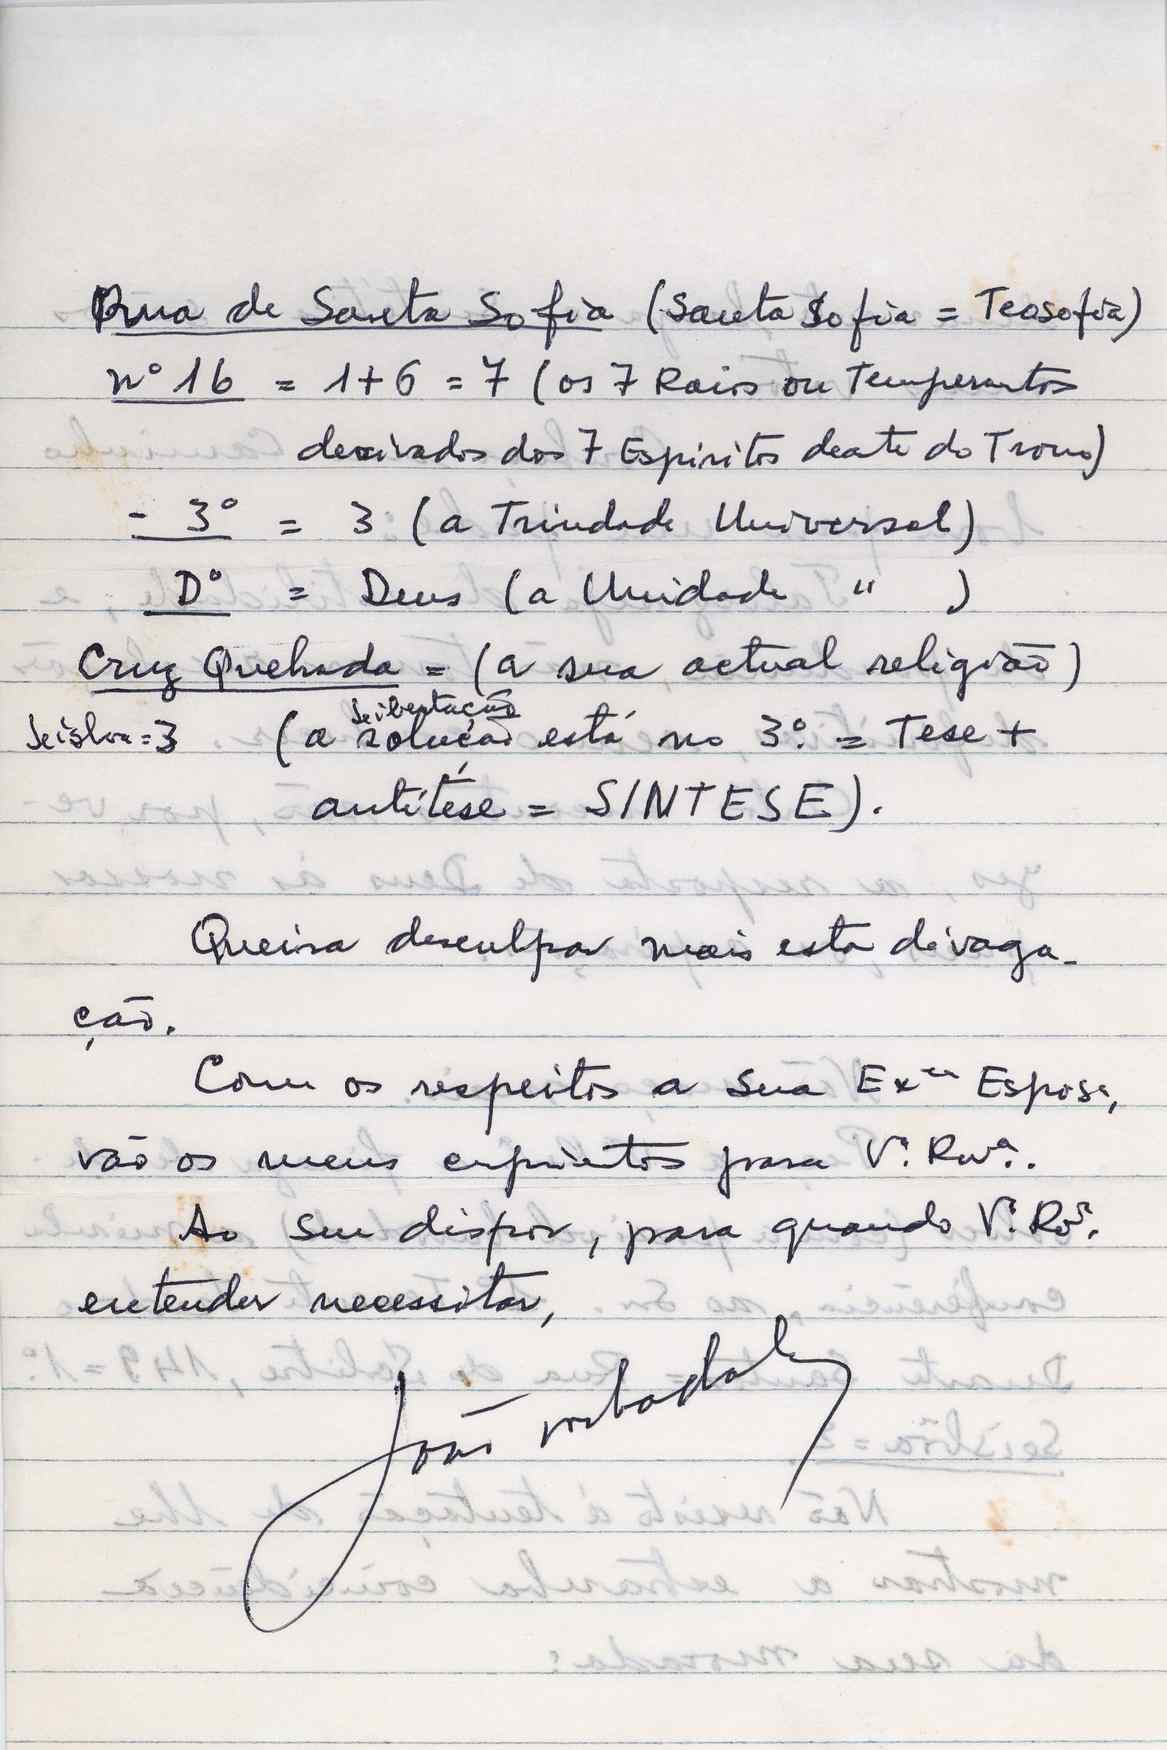 Rua de Santa Sofia (Santa Sofia = Teosofia)
nº 16 = 1+6 = 7 (os 7 Raios ou Temperantos
derivados dos 7 Espiritos deante do Trono)
- 3º = 3 (a Trindade Universal)
Dº = Deus (a Unidade " )
Cruz Quebrada = (a sua actual religião)
libertação
= 3 (a solução está no 3º. = Tese +
antítese = SINTESE).
Queira desculpar mais esta divaga-
ção.
Com os respeitos a sua Exma Esposa,
vão os meus cuprientos para Vª. Revª..
Ao seu dispor, para quando Vª. Revª.
entender necessitar,
João